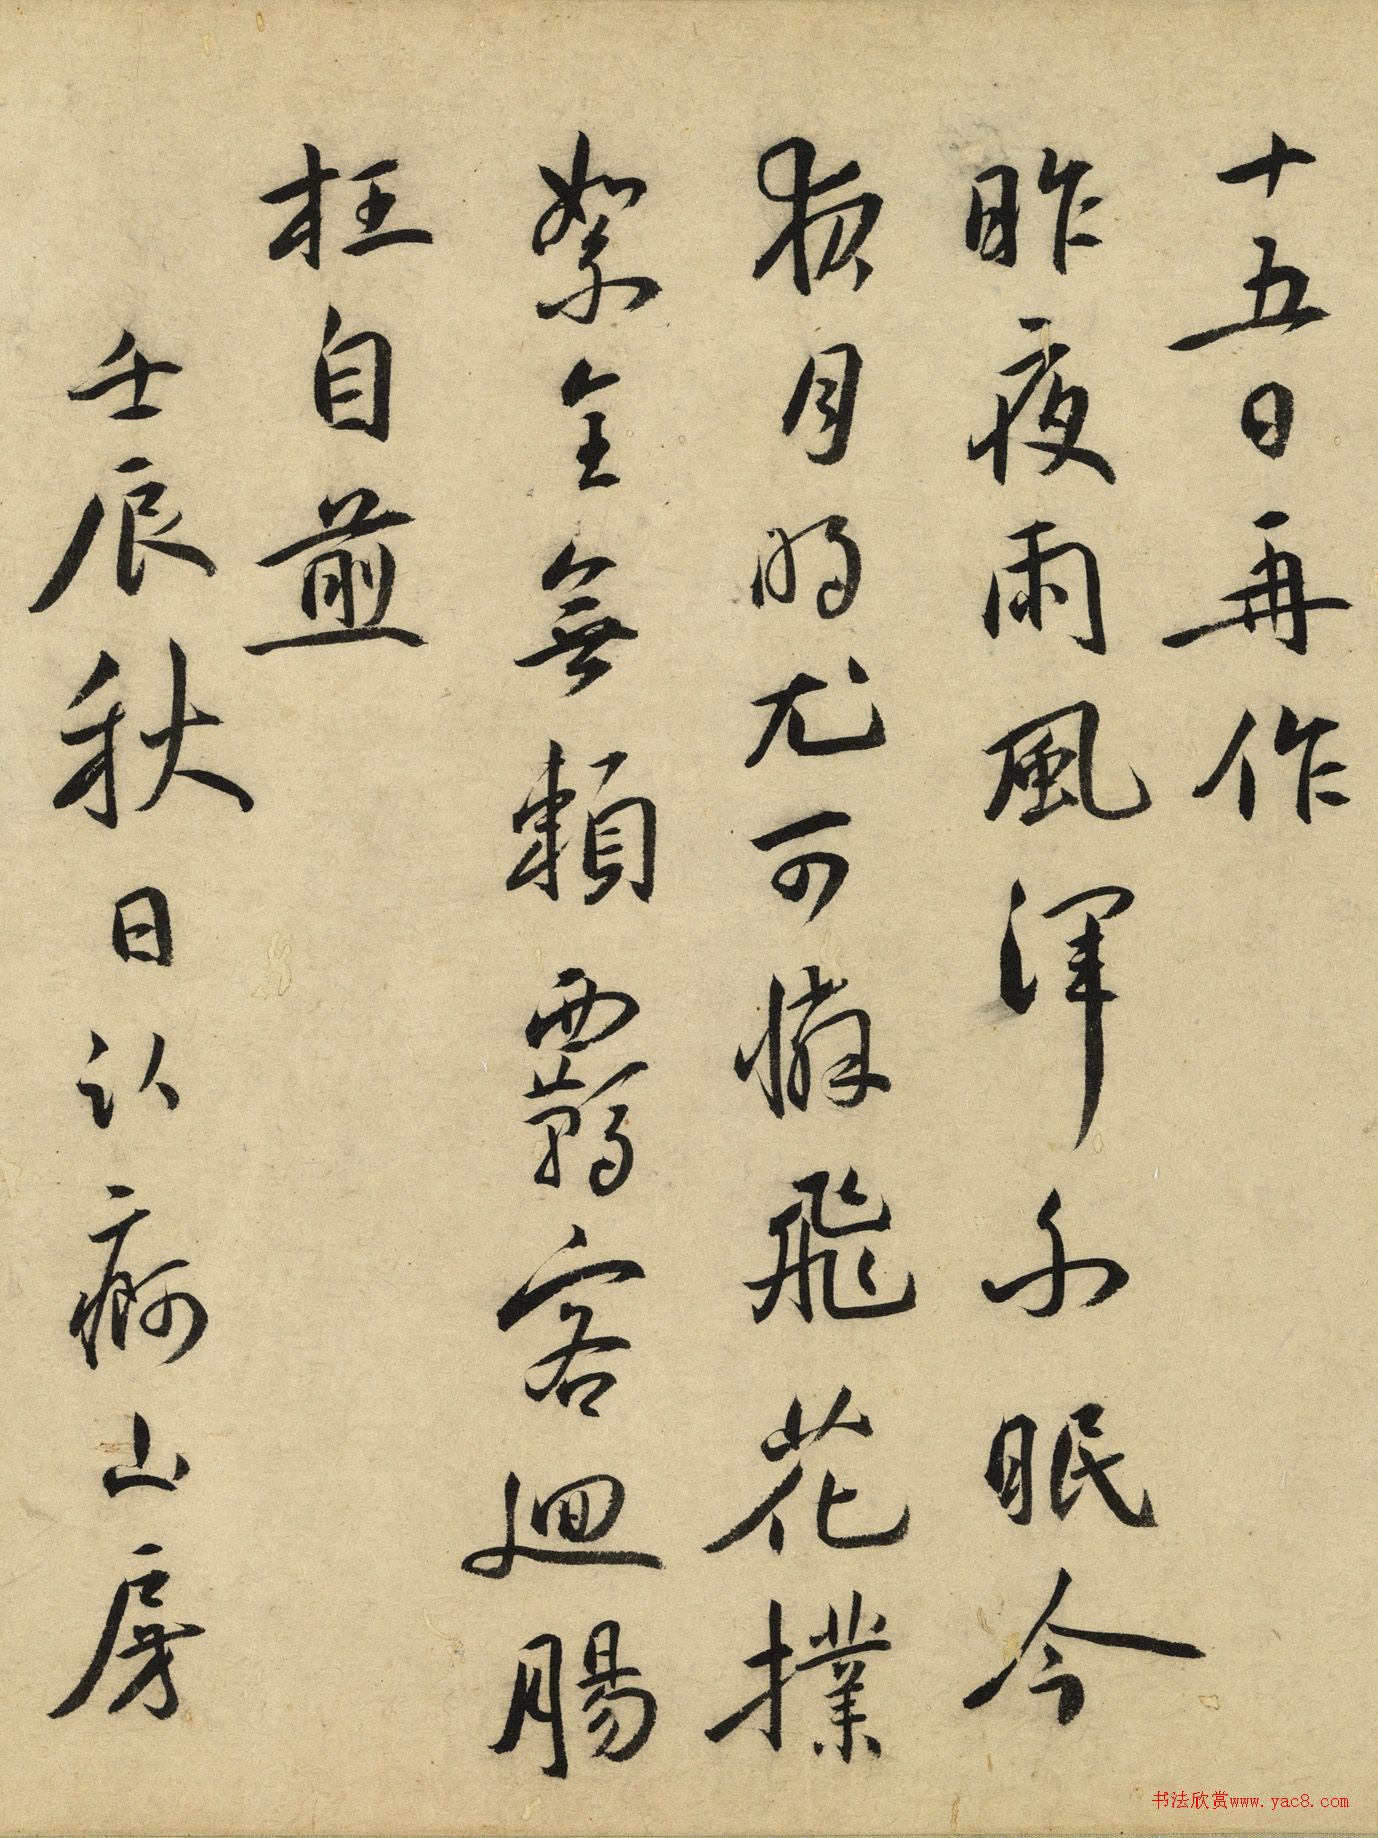 十五日再作
昨夜雨風渾不眠今
夜月明尤可憐飛花撲
絮全無賴覊客迴腸
枉自煎
壬辰秋日痾山房
书法欣赏www.yac8.com